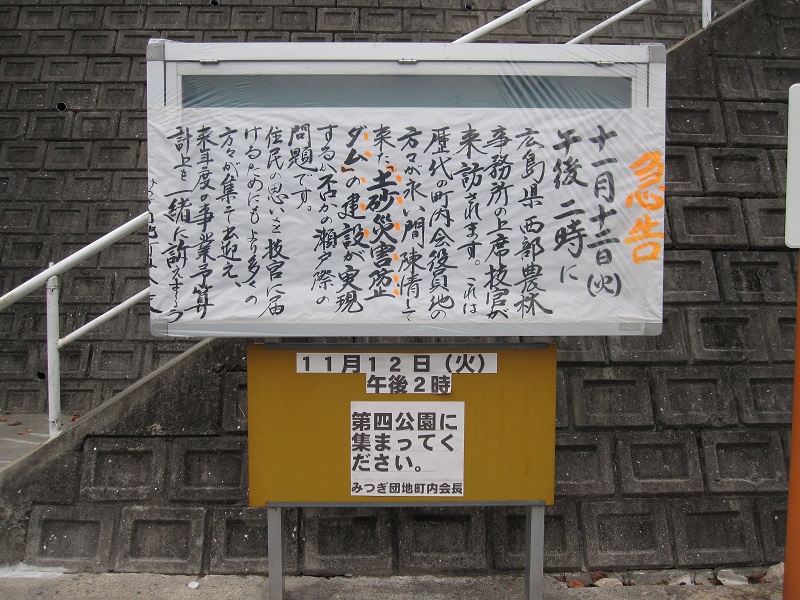 急告
十一月十二日(火)
午後二時に
広島県西部農林
事務所の上席技官が
来訪されます。これは
歴代の町内会役員他の
方々が永い間陳情して
来た「土砂災害防止
ダム」の建設が実現
するか否かの瀬戸際の
問題です。
住民の思いを技官に届
けるためにもより多くの
方々が集 迎え、
来年度の事業予算
計上を一緒に訴えましょう
11月12日(火)
午後2時
第四公園に
集まってく
ださい。
みつぎ団地町内会長